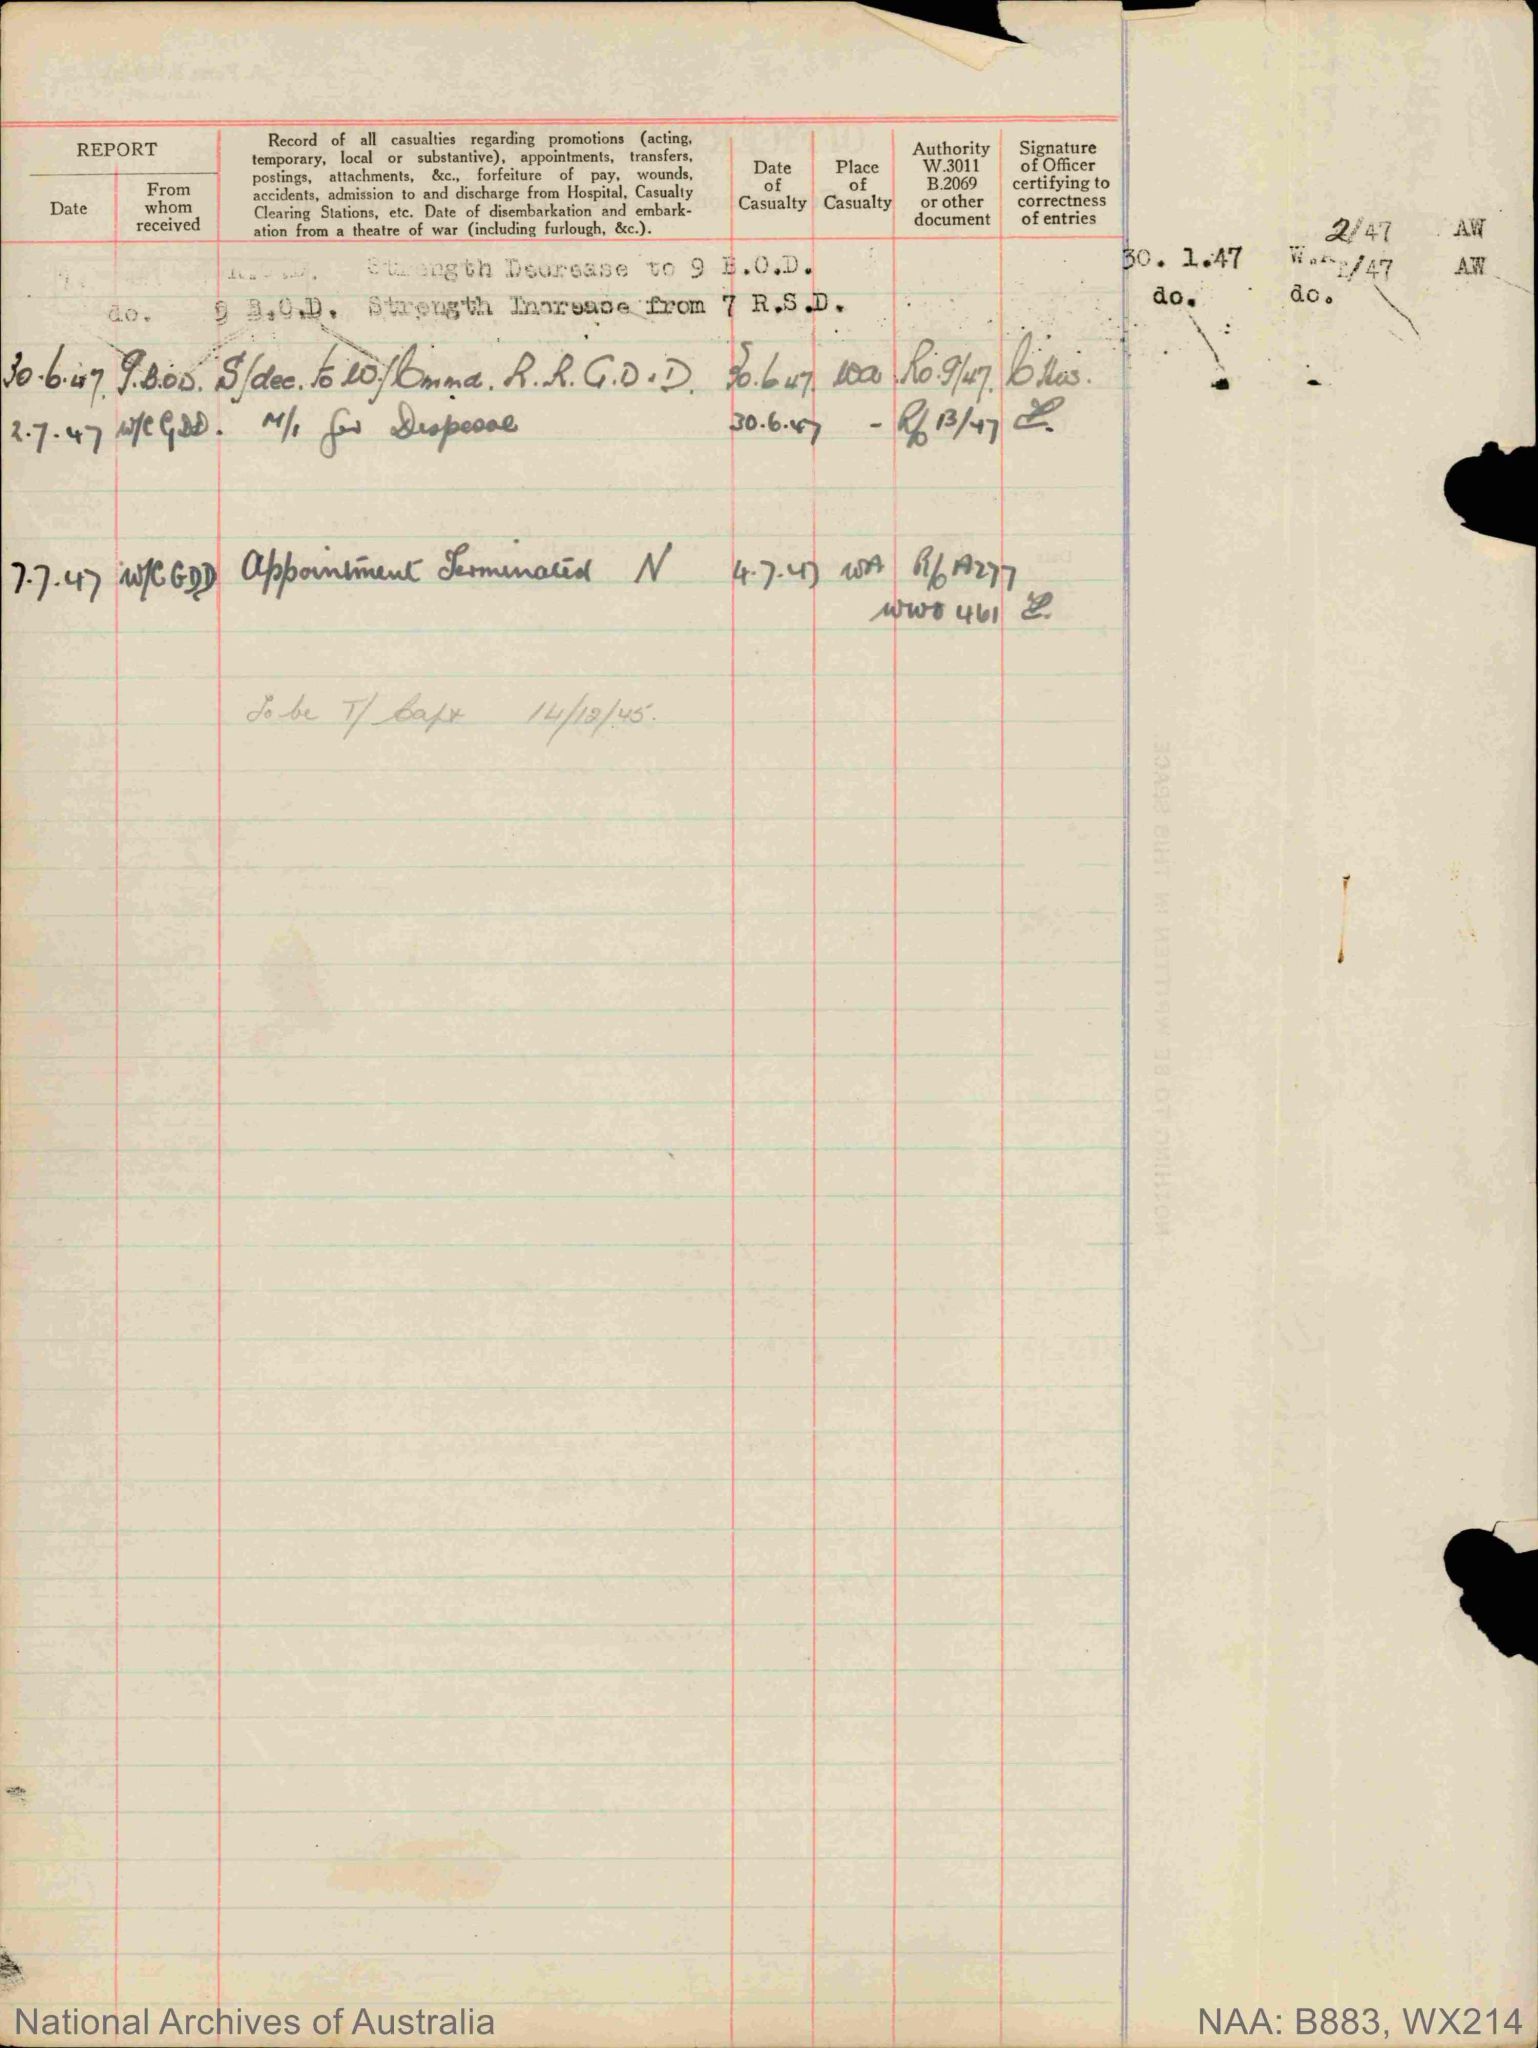 REPORT
Date
From
whom
received
Record of all casualties regarding promotions (acting,
temporary, local or substantive), appointments, transfers,
postings, attachments, &c., forfeiture of pay, wounds,
accidents, admission to and discharge from Hospital, Casualty
Clearing Stations, etc. Date of disembarkation and embark-
ation from a theatre of war (including furlough, &c.).
Date
of
Casualty
Place
of
Casualty
Authority
W.3011
B.2069
or other
document
Signature
of Officer
certifying to
correctness
of entries
2/47 AW
Strength Decrease to 9 B.O.D. 30. 1.47 2/47 AW
do. 9 B.O.D. Strength Increase from 7 R.S.D. do. do.
30.6.47 9.B.O.D. S/dec. to W/Cmmd. R.R.G.D.D. 30.6.47 WA Ro.9/47
2.7.47 W/C GDD. M/I for Disposal 30.6.47 - R/o 13/47
7.7.47 W/C GDD Appointment Terminated N 4.7.47 WA R/o A277
WWO 461
To be T/ Capt 14/12/45.
NOTHING TO BE WRITTEN IN THIS SPACE
National Archives of Australia
NAA: B883, WX214